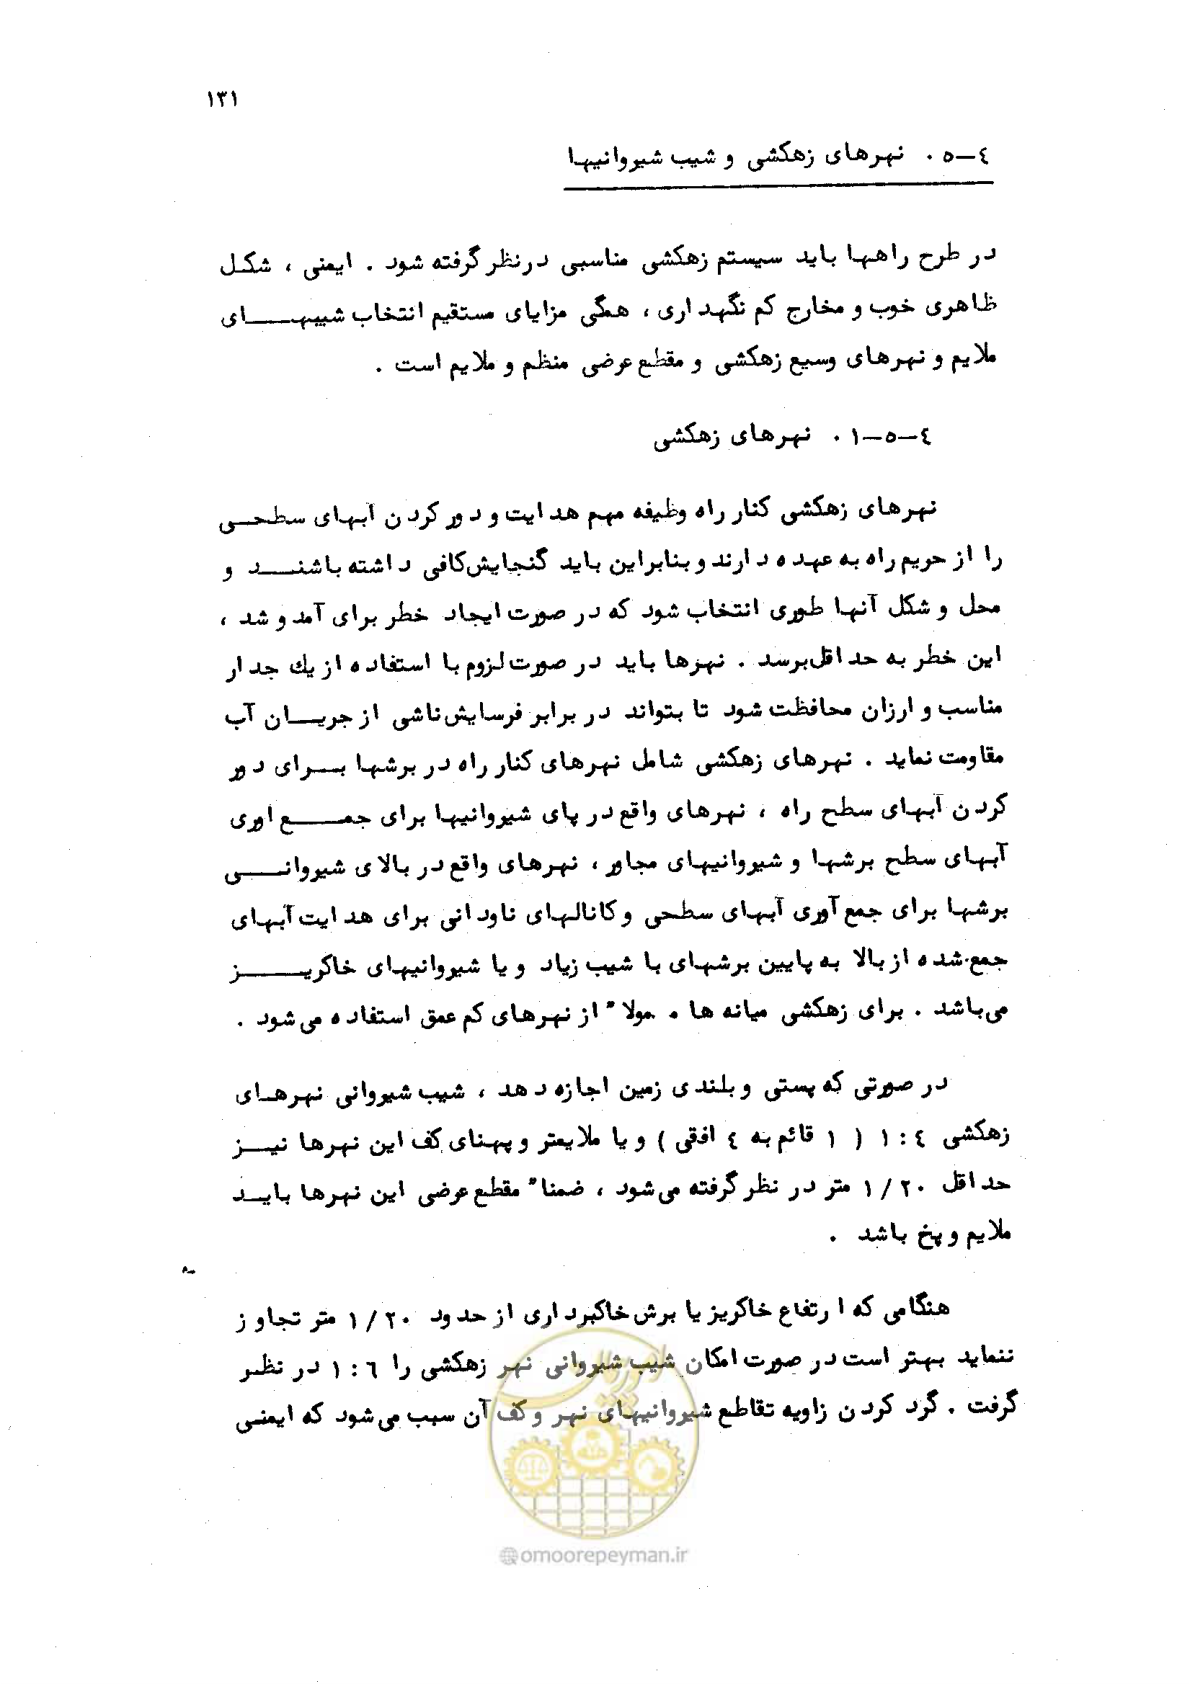 ۱۳۱
٤-۵. نهرهای زهکشی و شیب شیروانیها
در طرح راهها باید سیستم زهکشی مناسبی درنظر گرفته شود. ایمنی، شکل
ظاهری خوب و مخارج کم نگهداری، همگی مزایای مستقیم انتخاب شیبهای
ملایم و نهرهای وسیع زهکشی و مقطع عرضی منظم و ملایم است.
٤-۵-۱. نهرهای زهکشی
نهرهای زهکشی کنار راه وظیفه مهم هدایت و دور کردن آبهای سطحی
را از حریم راه به عهده دارند و بنابراین باید گنجایش کافی داشته باشند و
محل و شکل آنها طوری انتخاب شود که در صورت ایجاد خطر برای آمد و شد،
این خطر به حداقل برسد. نهرها باید در صورت لزوم با استفاده از یك جدار
مناسب و ارزان محافظت شود تا بتواند در برابر فرسایش ناشی از جریان آب
مقاومت نماید. نهرهای زهکشی شامل نهرهای کنار راه در برشها برای دور
کردن آبهای سطح راه، نهرهای واقع در پای شیروانیها برای جمع اوری
آبهای سطح برشها و شیروانیهای مجاور، نهرهای واقع در بالای شیروانی
برشها برای جمع آوری آبهای سطحی و کانالهای ناودانی برای هدایت آبهای
جمع شده از بالا به پایین برشهای با شیب زیاد و یا شیروانیهای خاکریز
می‌باشد. برای زهکشی میانه ها معمولا" از نهرهای کم عمق استفاده می‌شود.
در صورتی که پستی و بلندی زمین اجازه دهد، شیب شیروانی نهرهای
زهکشی ٤:۱ (۱ قائم به ٤ افقی) و یا ملایمتر و پهنای کف این نهرها نیز
حداقل ۱/۲۰ متر در نظر گرفته می‌شود، ضمنا" مقطع عرضی این نهرها باید
ملایم و پخ باشد.
هنگامی که ارتفاع خاکریز یا برش خاکبرداری از حدود ۱/۲۰ متر تجاوز
ننماید بهتر است در صورت امکان شیب شیروانی نهر زهکشی را ٦:۱ در نظر
گرفت. گرد کردن زاویه تقاطع شیروانیهای نهر و کف آن سبب می‌شود که ایمنی
امور پیمان
@omoorepeyman.ir